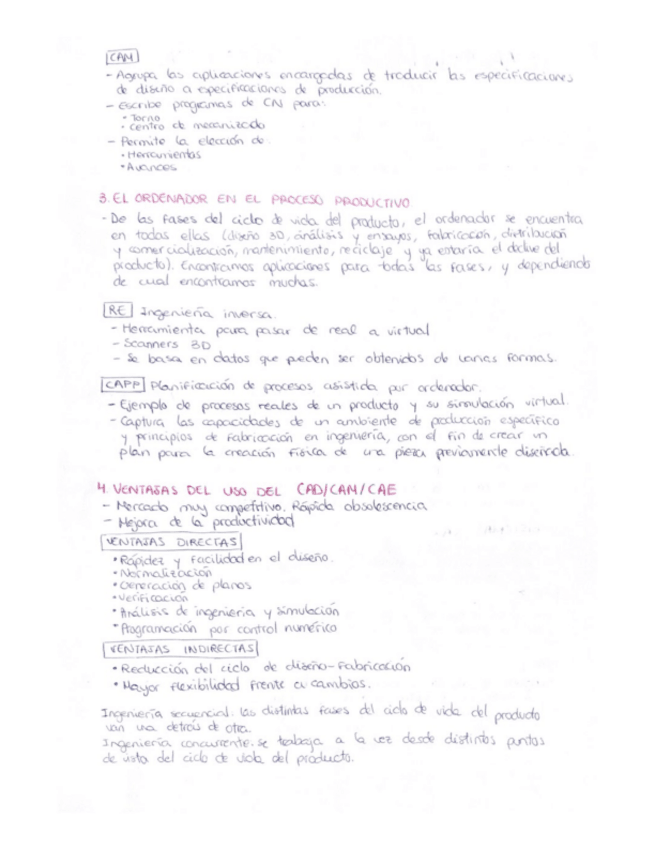 CAM
- Agrupa las aplicaciones encargadas de traducir las especificaciones
de diseño a especificaciones de producción.
- Escribe programas de CN para:
• Torno
• Centro de mecanizado
- Permite la elección de
• Herramientas
• Avances
3. EL ORDENADOR EN EL PROCESO PRODUCTIVO
- De las fases del ciclo de vida del producto, el ordenador se encuentra
en todas ellas (diseño 3D, análisis y ensayos, fabricación, distribución
y comercialización, mantenimiento, reciclaje y ya estaría el del
producto). Encontramos aplicaciones para todas las fases, y dependiendo
de cual encontramos muchas.
RE Ingeniería inversa.
- Herramienta para pasar de real a virtual
- Scanners 3D
- Se basa en datos que pueden ser obtenidos de varias formas.
CAPP Planificación de procesos asistida por ordenador.
- Ejemplo de procesos reales de un producto y su simulación virtual.
- Captura las capacidades de un ambiente de producción específico
y principios de fabricación en ingeniería, con el fin de crear un
plan para la creación física de una pieza previamente diseñada.
4. VENTAJAS DEL USO DEL CAD/CAM/CAE
- Mercado muy competitivo. Rápida obsolescencia
- Mejora de la productividad
VENTAJAS DIRECTAS
• Rapidez y facilidad en el diseño.
• Normalización
• Generación de planos
• Verificación
• Análisis de ingeniería y simulación
• Programación por control numérico
VENTAJAS INDIRECTAS
• Reducción del ciclo de diseño-fabricación
• Mayor flexibilidad frente a cambios.
Ingeniería secuencial: las distintas fases del ciclo de vida del producto
van una detrás de otra.
Ingeniería concurrente: se trabaja a la vez desde distintos puntos
de vista del ciclo de vida del producto.